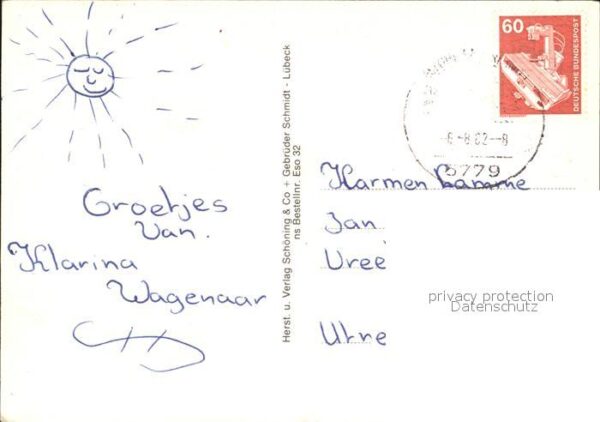 Groetjes
van.
Klarina
Wagenaar
Herst. u. Verlag Schöning & Co + Gebrüder Schmidt - Lübeck
ns Bestellnr. Eso 32
60
DEUTSCHE BUNDESPOST
-8.82--8
5779
Karmen
Jan
Vree
Utre
privacy protection
Datenschutz